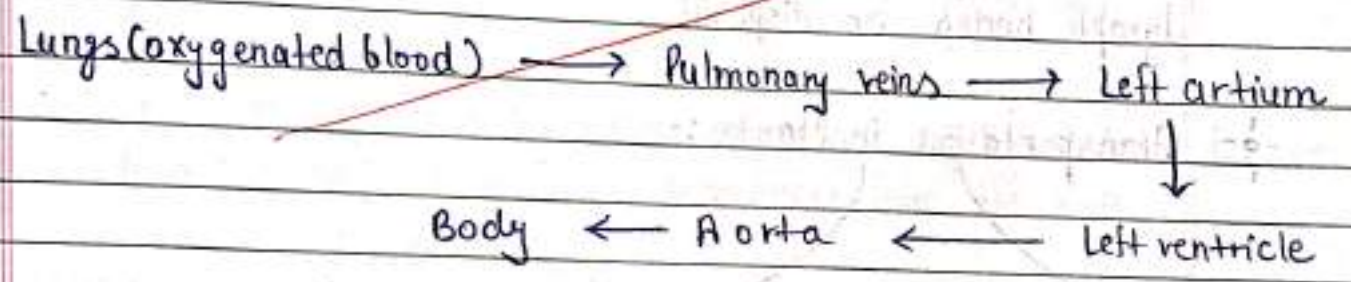 Lungs (oxygenated blood) → Pulmonary veins → Left artium
↓
Body ← Aorta ← Left ventricle